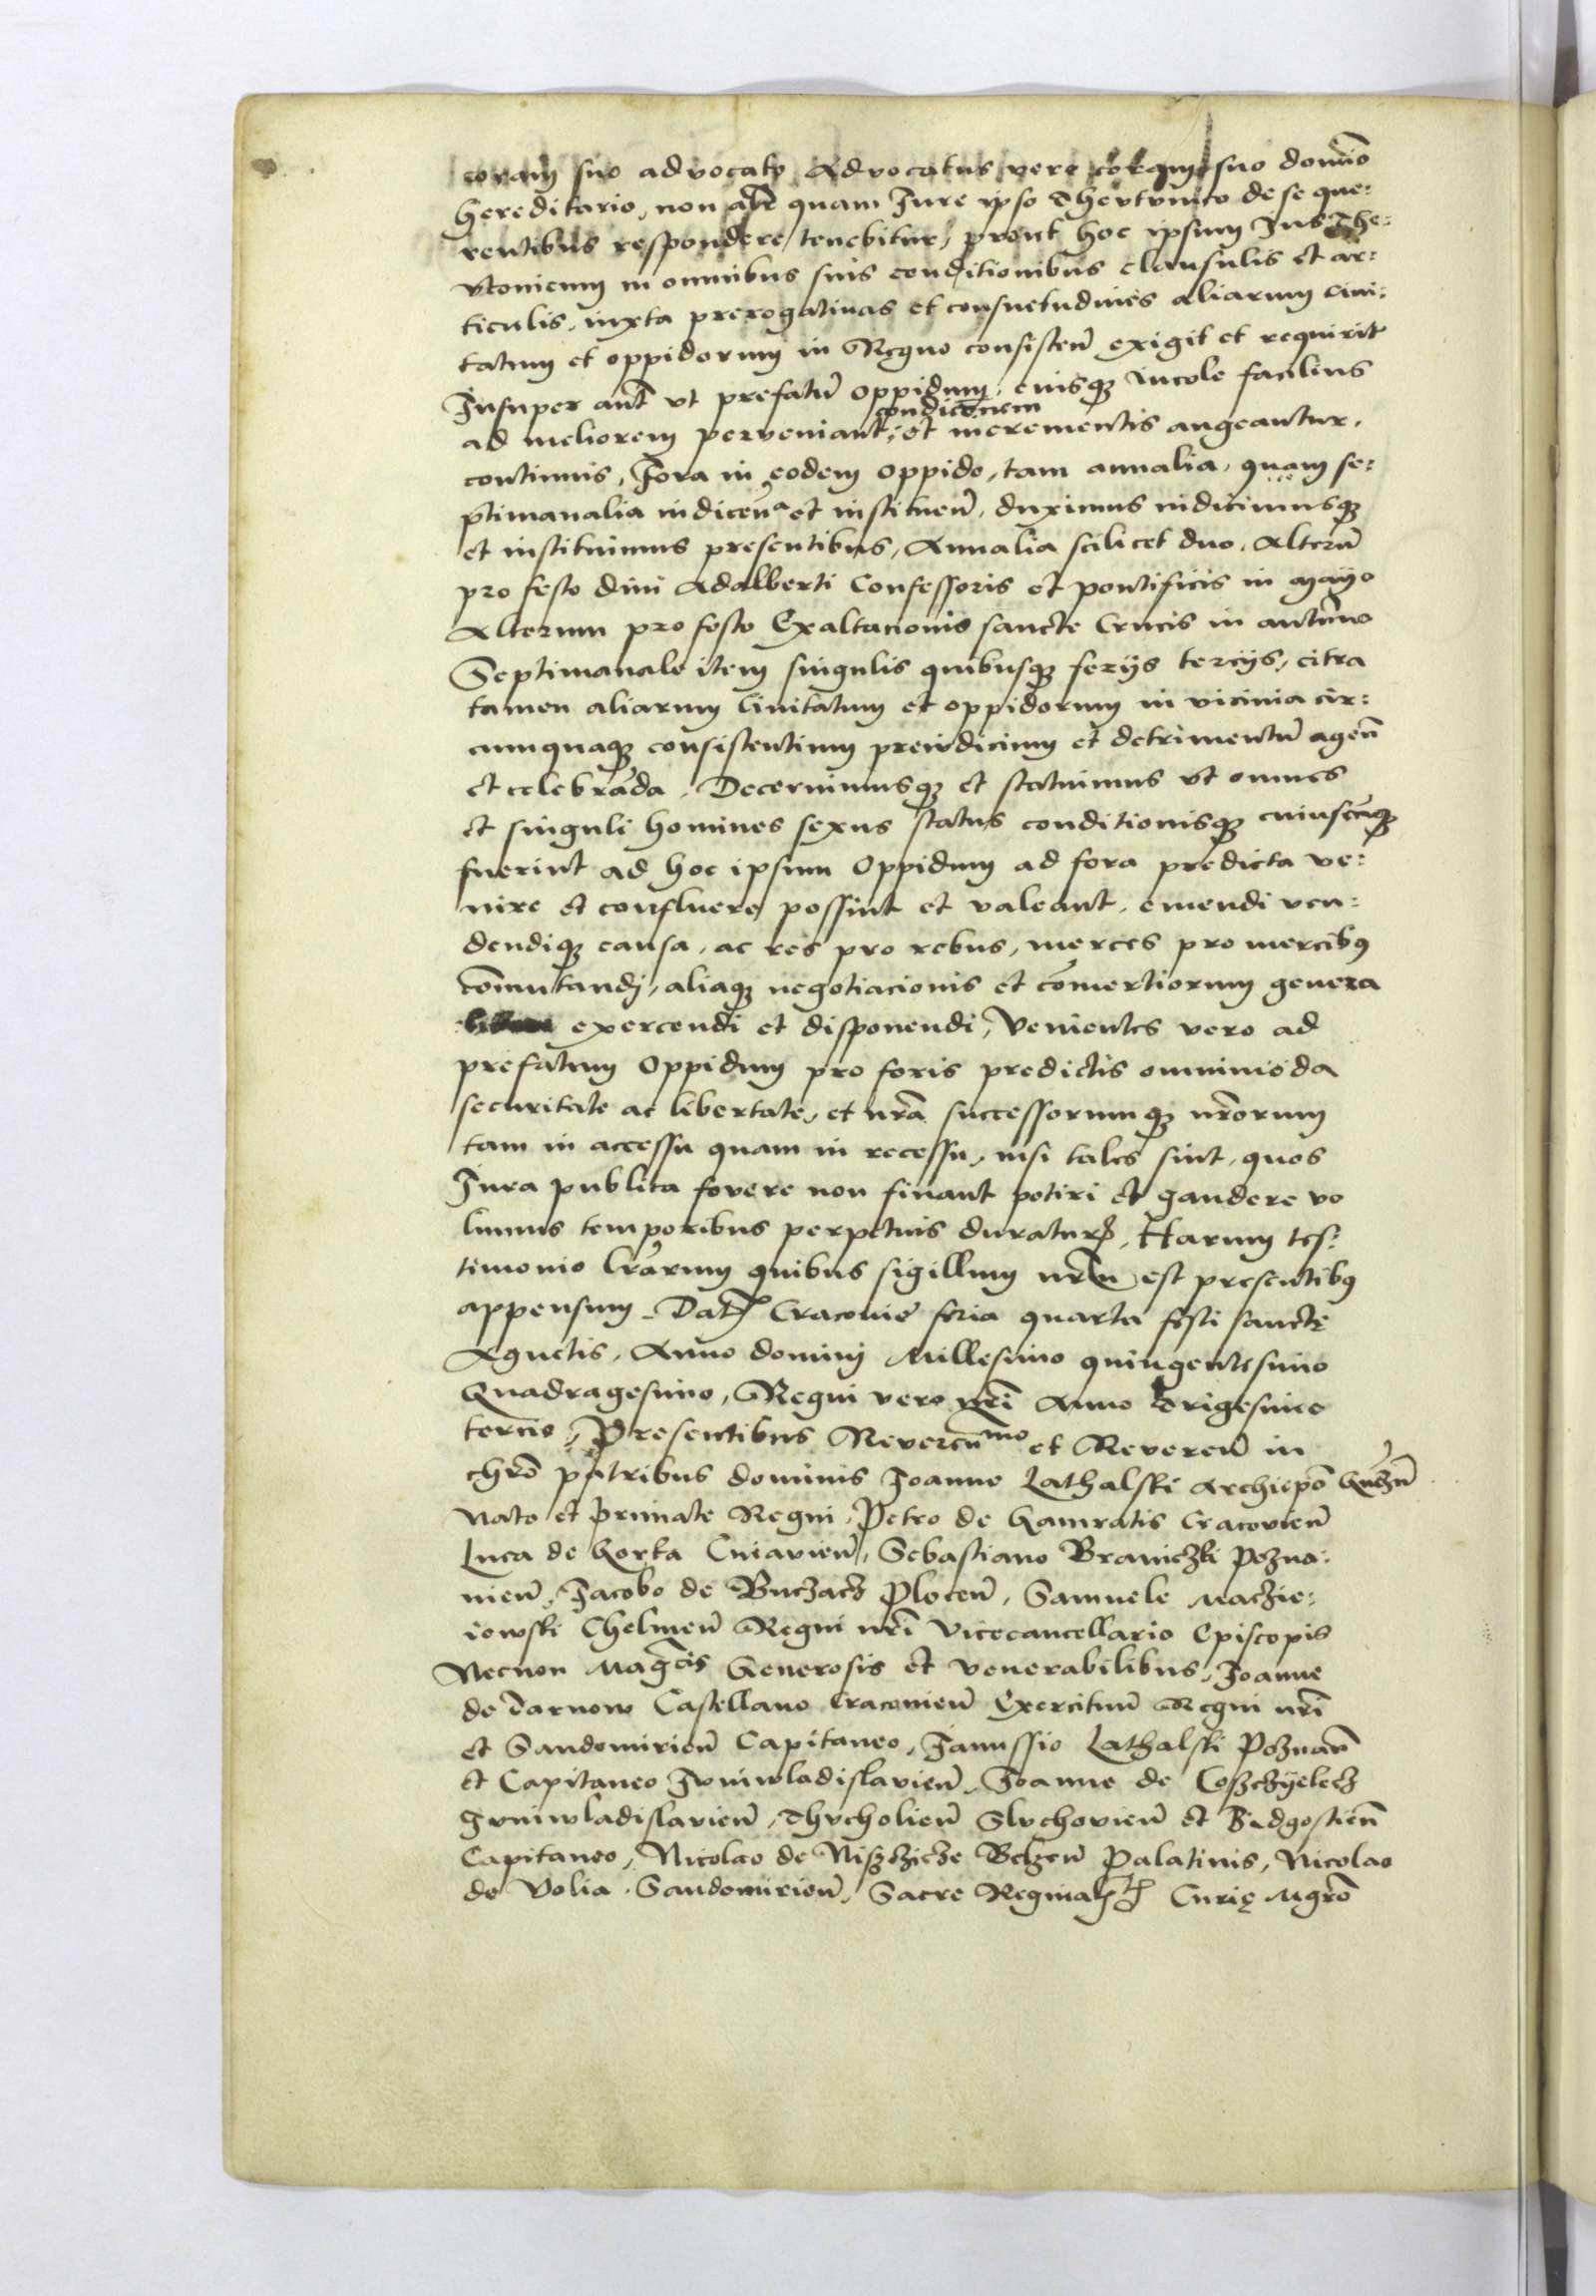 coram suo advocato Advocatus vero coram suo domīo
hereditario, non alr̄ quam Iure ipso Thevtunico de se que:
rentibus respondere tenebitur, prout hoc ipsum Ius The:
vtonicum in omnibus suis conditionibus clausulis et ar:
ticulis, iuxta prerogatiuas et consuetudines aliarum ciui:
tatum et oppidorum in Regno consisteñ exigit et requirit
Insuper aut̄ vt prefatū oppidum, eiusq̨ incole facilius
condicōnem
ad meliorem perveniant, et incrementis augeantur,
continuis, Fora in eodem oppido, tam annalia, quam se:
ptimanalia indiceña et institueñ, duximus indicimusq̨
et instituimus presentibus, Annalia scilicet duo, Alterū
pro festo diui Adalberti Confessoris et pontificis in Mayo
Alterum pro festo Exaltacionis sancte Crucis in autūno
Septimanale item singulis quibusq̨ ferijs tercijs, citra
tamen aliarum Ciuitatum et oppidorum in vicinia cir:
cumquaq̨ consistentium preiudicium et detrimentū ageñ
et celebrāda, Decernimusq̨ et statuimus vt omnes
et singuli homines sexus status conditionisq̨ cuiuscūq̨
fuerint ad hoc ipsum Oppidum ad fora predicta ve:
nire et confluere possint et valeant, emendi ven:
dendiq̨ causa, ac res pro rebus, merces pro mercibꝰ
cōmutandj, aliaq̨ negotiacionis et cōmertiorum genera
exercendi et disponendi, Venientes vero ad
prefatum Oppidum pro foris predictis omnimoda
securitate ac libertate, et nr̄a successorumq̨ nr̄orum
tam in accessu quam in recessu, nisi tales sint, quos
Iura publica fovere non sinant potiri et gaudere vo
lumus temporibus perpetuis duraturꝭ, Harum tes:
timonio lr̄arum quibus sigillum nr̄m est presentibꝰ
appensum. Datꝭ Cracovie feria quarta festi sanctę
Agnetis, Anno dominj Millesimo quingentesimo
Quadragesimo, Regni vero nr̄i Anno Trigesimo
tercio, Presentibus Revereñ mo et Revereñ in
chr̄o patribus dominis Joanne Lathalski Archiepō Gneznē
Nato et primate Regni, Petro de Gamratis Cracovieñ
Luca de Gorka Cuiavieñ, Sebastiano Braniczki Pozna:
nieñ, Jacobo de Buczacz Ploceñ, Samuele Maczie:
iowski Chelmeñ Regni nr̄i Vicecancellario Episcopis
Necnon Magcis Generosis et venerabilibus, Joanne
de Tarnow Castellano Cracovieñ Exercituū Regni nr̄i
et Sandomirieñ Capitaneo, Janussio Lathalski Poznañ
et Capitaneo Ivniwladislavieñ, Joanne de Coszczyelecz
Jvniwladislavieñ, Thvcholieñ Slvchovieñ et Bidgostieñ
Capitaneo, Nicolao de Niszczicze Belzeñ Palatinis, Nicolao
de Volia Sandomirieñ, Sacre Reginal Curię Mgr̄o